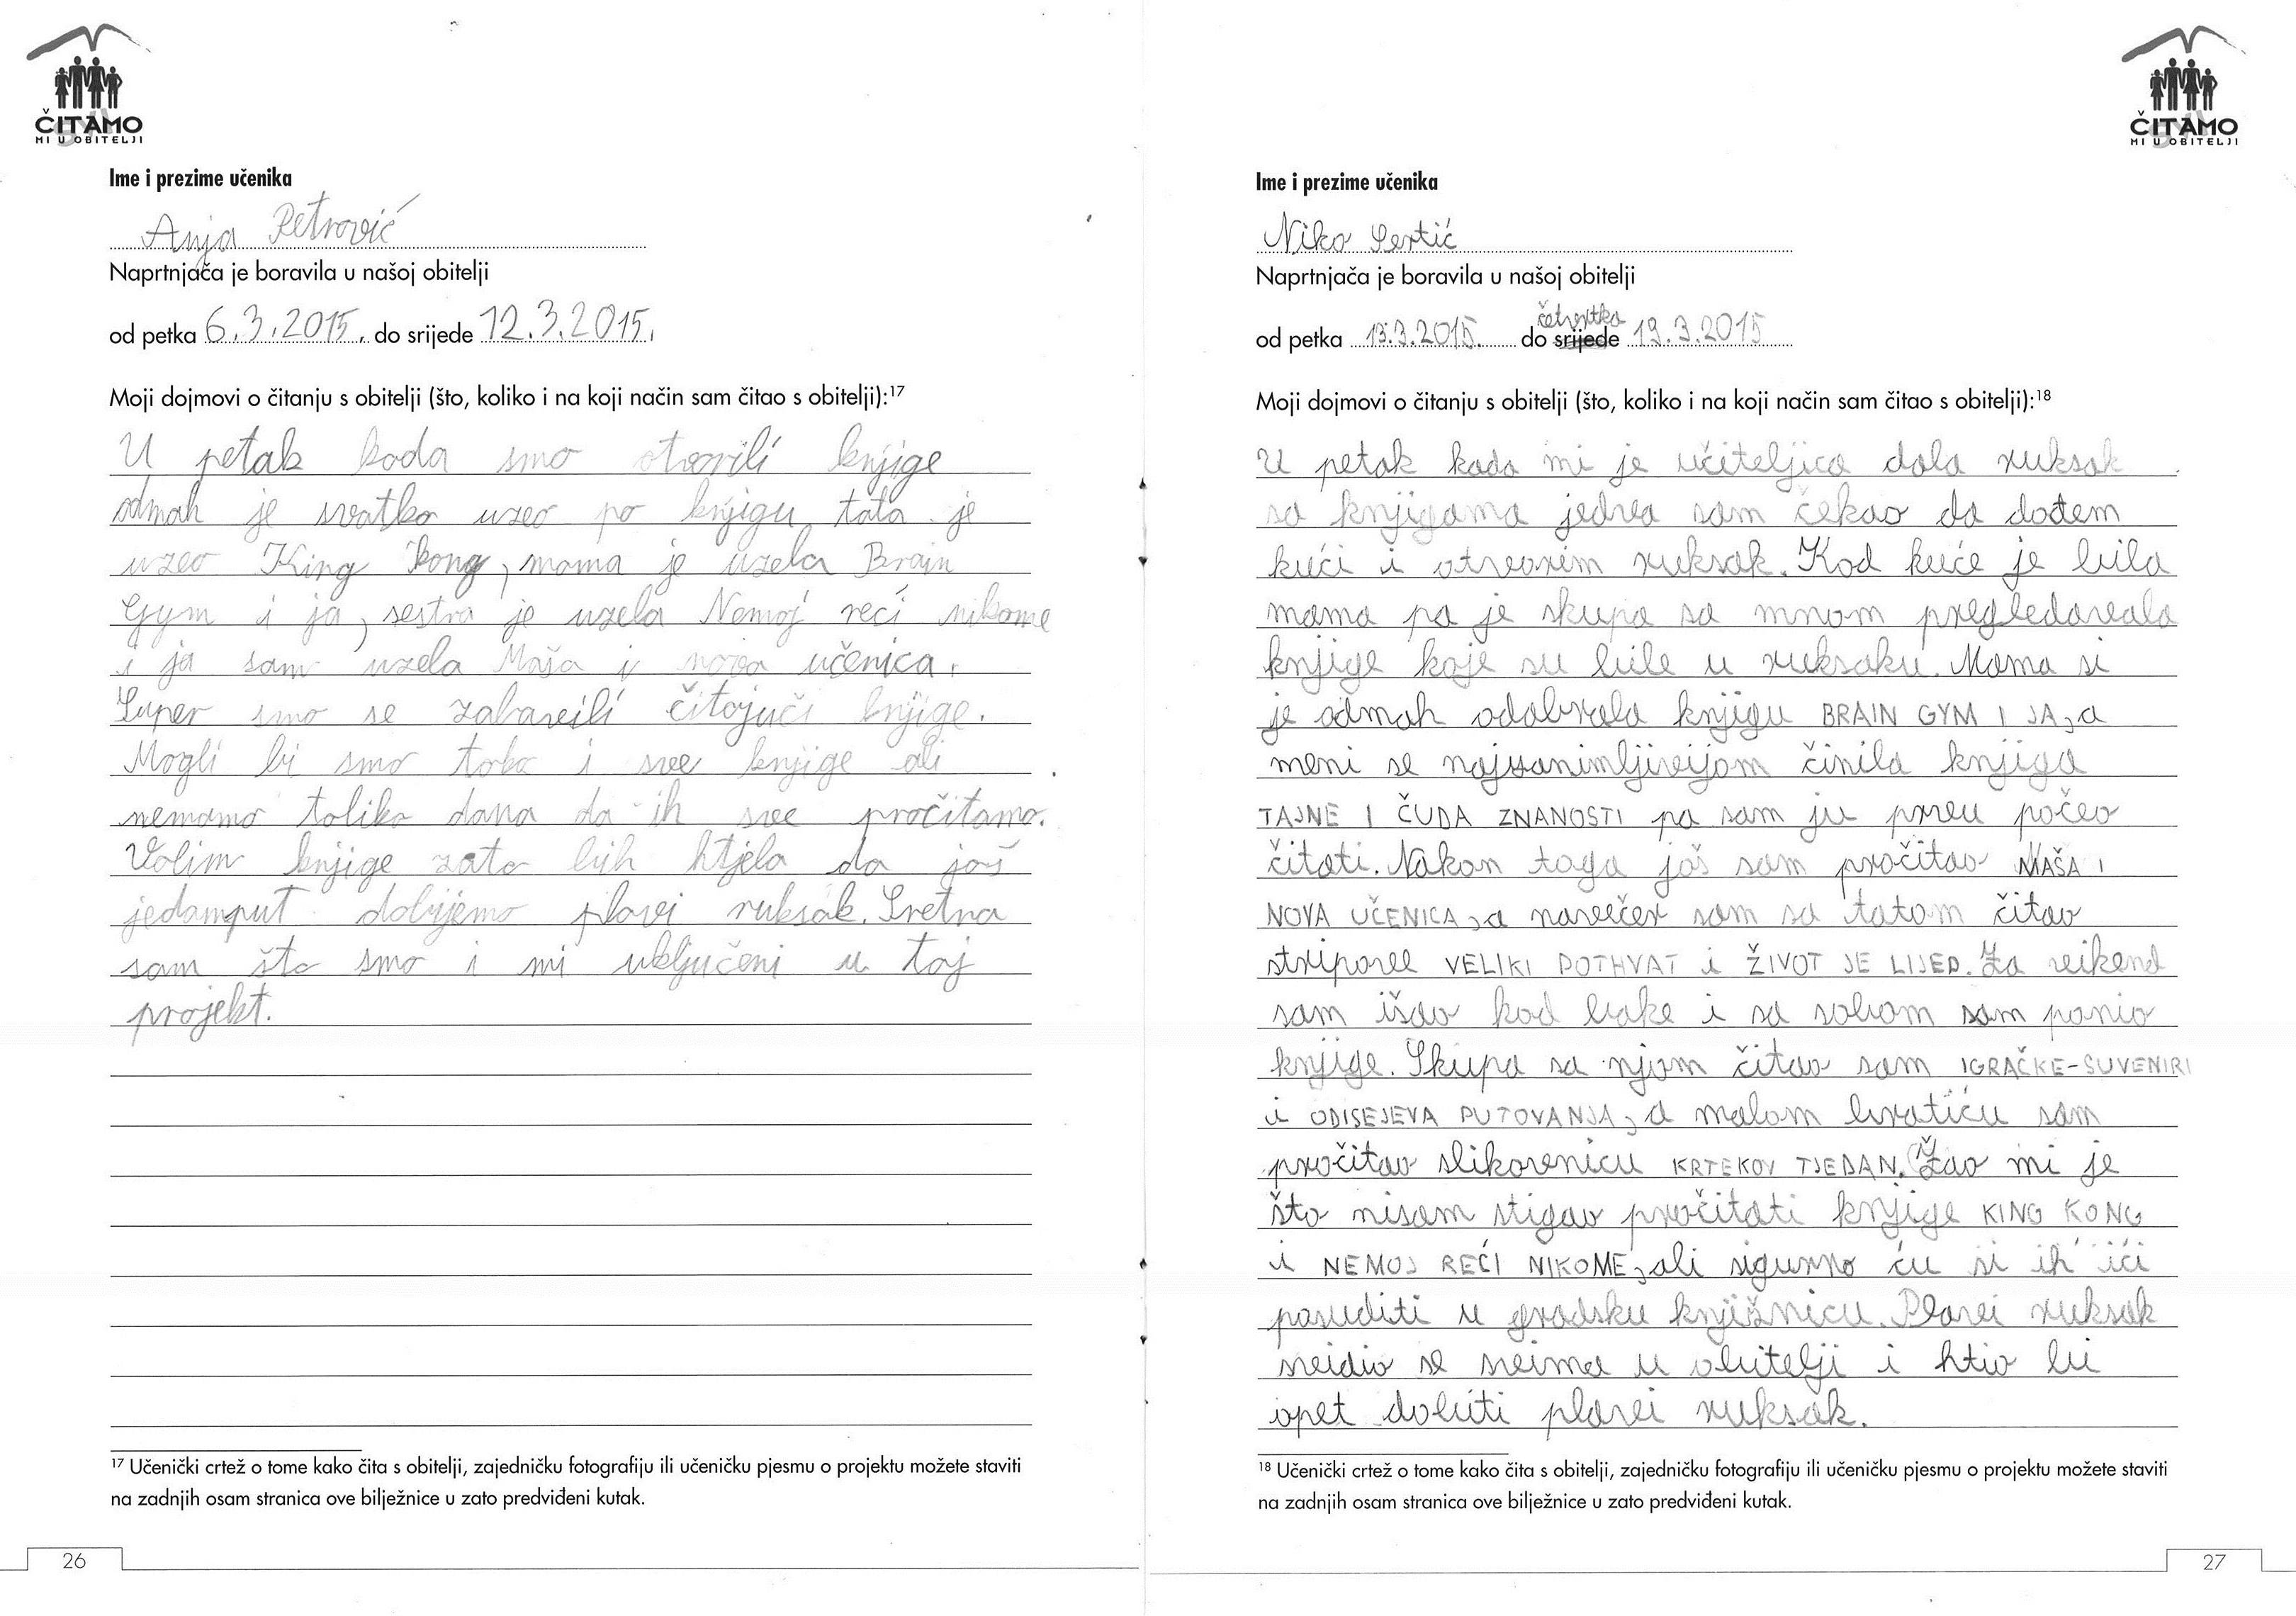 ČITAMO
MI U OBITELJI
Ime i prezime učenika
Anja Petrović
Naprtnjača je boravila u našoj obitelji
od petka 6.3.2015. do srijede 12.3.2015.
Moji dojmovi o čitanju s obitelji (što, koliko i na koji način sam čitao s obitelji):17
U petak kada smo otvorili knjige
odmah je svatko uzeo po knjigu, tata je
uzeo King Kong, mama je uzela Brain
Gym i ja, sestra je uzela Nemoj reći nikome
i ja sam uzela Maša i nova učenica.
Super smo se zabavili čitajući knjige.
Mogli bi smo tako i sve knjige ali
nemamo toliko dana da ih sve pročitamo.
Volim knjige zato bih htjela da još
jedamput dobijemo plavi ruksak. Sretna
sam što smo i mi uključeni u taj
projekt.
17 Učenički crtež o tome kako čita s obitelji, zajedničku fotografiju ili učeničku pjesmu o projektu možete staviti
na zadnjih osam stranica ove bilježnice u zato predviđeni kutak.
26
ČITAMO
MI U OBITELJI
Ime i prezime učenika
Niko Sertić
Naprtnjača je boravila u našoj obitelji
četvrtka
od petka 13.3.2015. do srijede 19.3.2015
Moji dojmovi o čitanju s obitelji (što, koliko i na koji način sam čitao s obitelji):18
U petak kada mi je učiteljica dala ruksak
sa knjigama jedva sam čekao da dođem
kući i otvorim ruksak. Kod kuće je bila
mama pa je skupa sa mnom pregledavala
knjige koje su bile u ruksaku. Mama si
je odmah odabrala knjigu BRAIN GYM I JA, a
meni se najzanimljivijom činila knjiga
TAJNE I ČUDA ZNANOSTI pa sam ju prvu počeo
čitati. Nakon toga još sam pročitao MAŠA I
NOVA UČENICA, a navečer sam sa tatom čitao
stripove VELIKI POTHVAT i ŽIVOT JE LIJEP. Za vikend
sam išao kod bake i sa sobom sam ponio
knjige. Skupa sa njom čitao sam IGRAČKE-SUVENIRI
i ODISEJEVA PUTOVANJA, a malom bratiću sam
pročitao slikovnicu KRTEKOV TJEDAN. Žao mi je
što nisam stigao pročitati knjige KING KONG
i NEMOJ REĆI NIKOME, ali sigurno ću si ih ići
posuditi u gradsku knjižnicu. Plavi ruksak
svidio se svima u obitelji i htio bi
opet dobiti plavi ruksak.
18 Učenički crtež o tome kako čita s obitelji, zajedničku fotografiju ili učeničku pjesmu o projektu možete staviti
na zadnjih osam stranica ove bilježnice u zato predviđeni kutak.
27